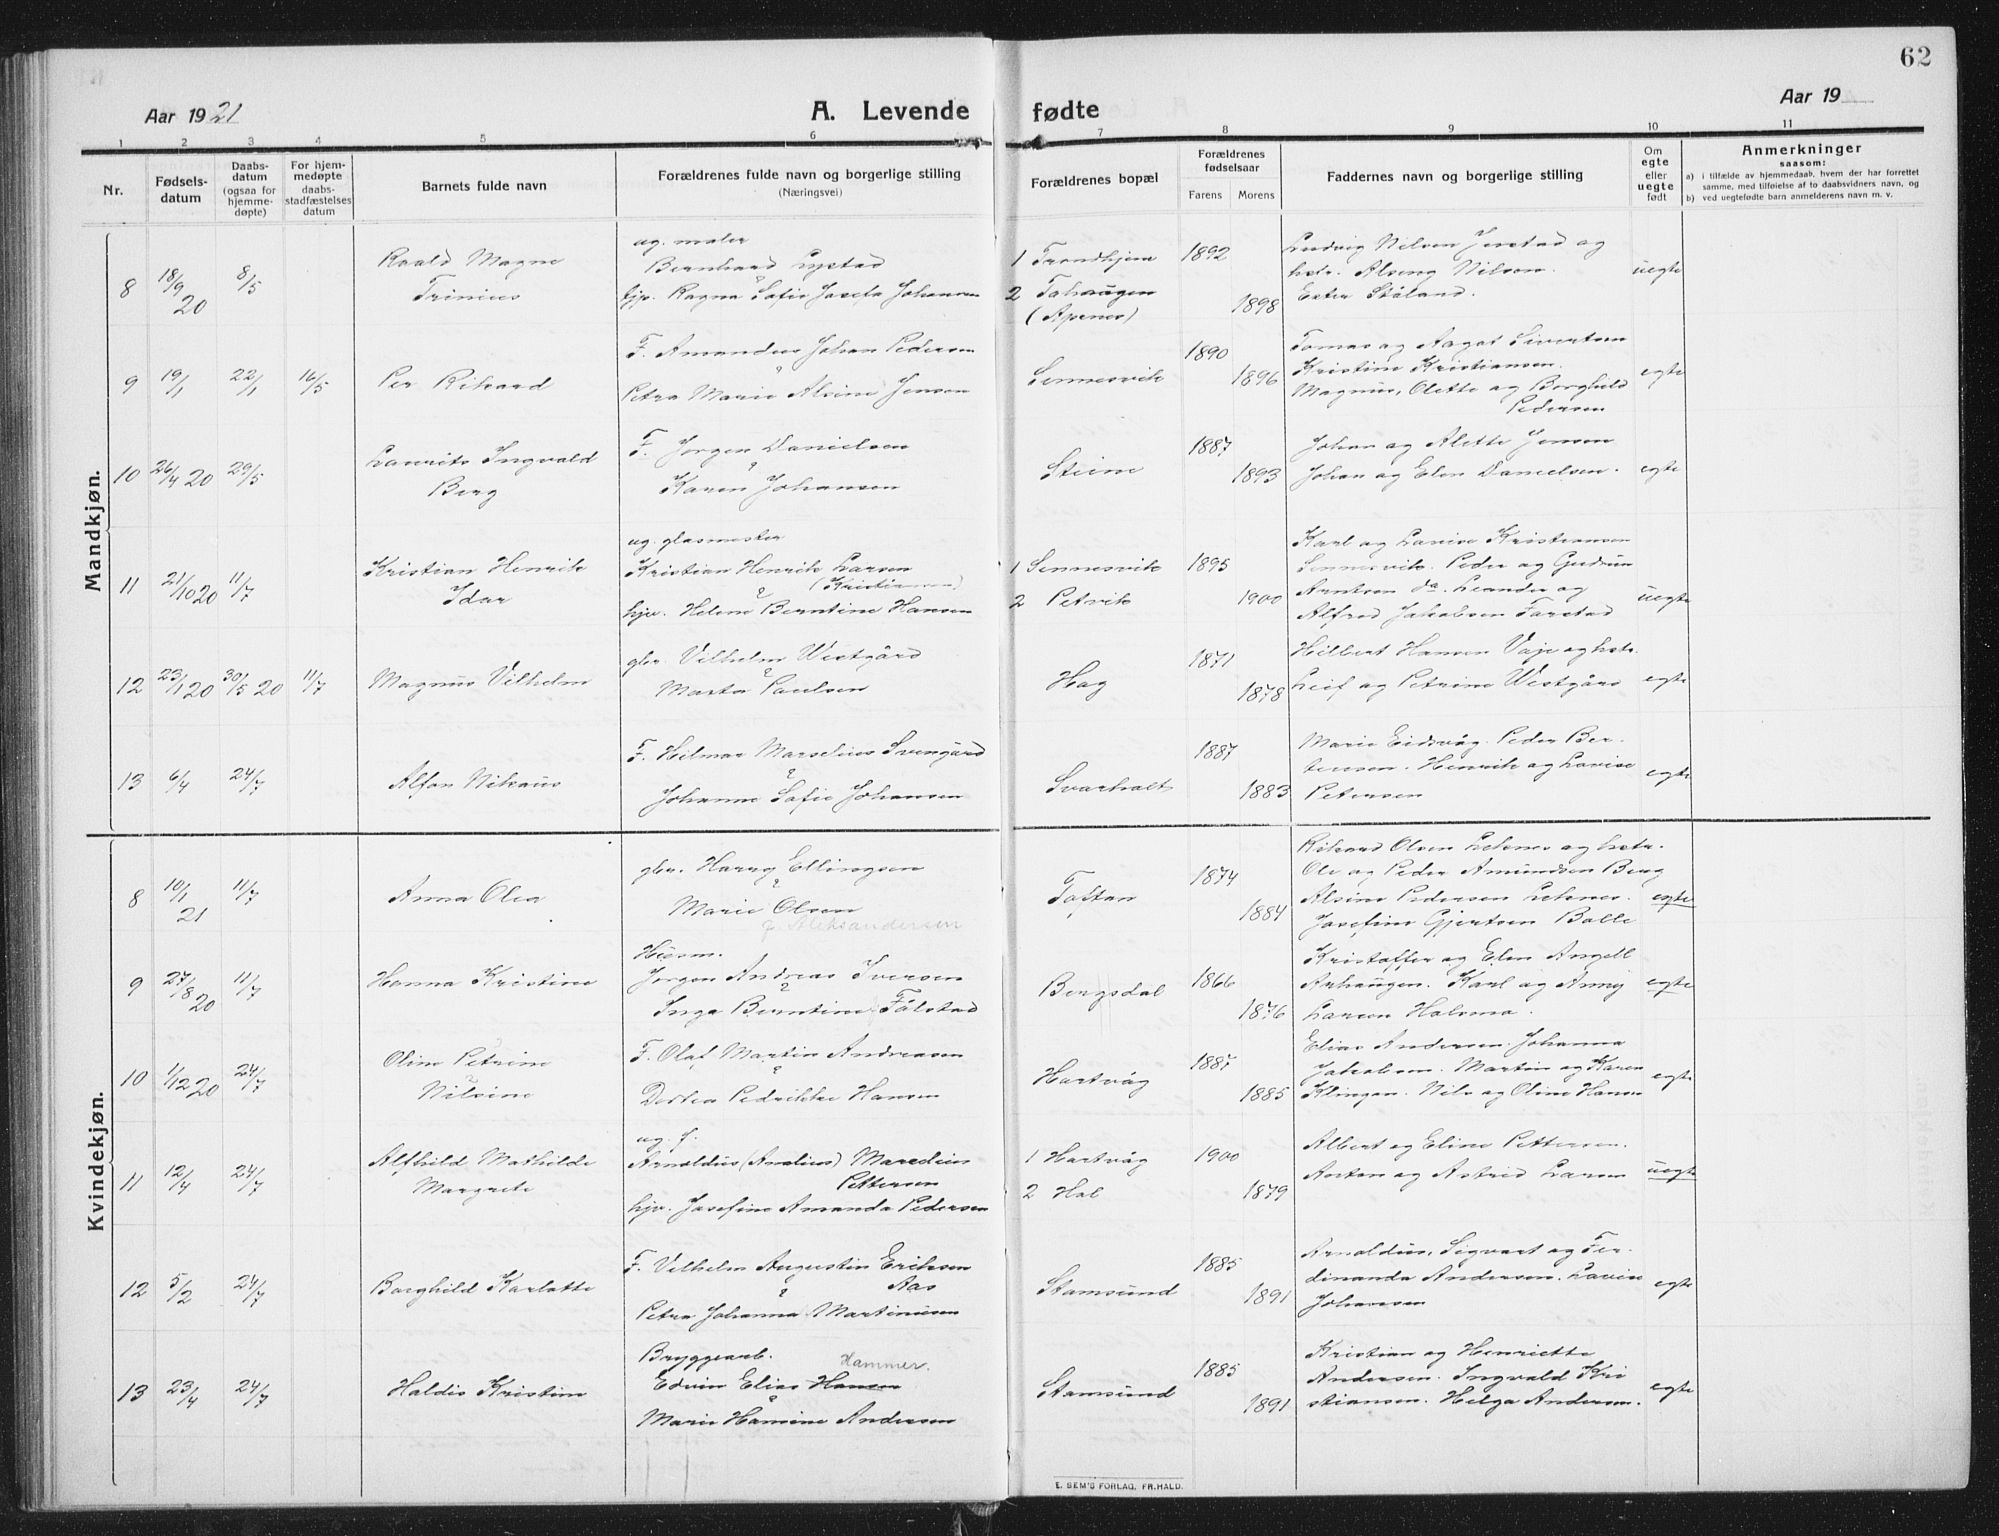 62
Aar 1921
A. Levende fødte
Aar 19
1 2 3 4 5 6 7 8 9 10 11
Nr.
Fødsels-
datum
Daabs-
datum
(ogsaa for
hjemme-
døpte)
For hjem-
medøpte
daabs-
stadfæstelses
datum
Barnets fulde navn
Forældrenes fulde navn og borgerlige stilling
(Næringsvei)
Forældrenes bopæl
Forældrenes
fødselsaar
Farens Morens
Faddernes navn og borgerlige stilling
Om
egte
eller
uegte
født
Anmerkninger
saasom:
a) i tilfælde av hjemmedaab, hvem der har forrettet
samme, med tilføielse af to daabsvidners navn, og
b) ved uegtefødte barn anmelderens navn m. v.
Mandkjøn.
8 18/9 20 8/5
Roald Magne
Trinius
ug. maler
Bernhard Lystad
&
tjp. Ragna Sofie Josefa Johansen
1 Trondhjem
2
(Apenes)
1892
1898
Ludvig Nilsen Jerstad og
hstr. Alseng Nilsen.
Ester Ståland.
uegte
9 19/1 22/1 16/5
Per Rikard
F. Amandus Johan Pedersen
&
Petra Marie Alsine Jensen
Sennesvik
1890
1896
Tomas og Aagot Sivertsen
Kristine Kristiansen.
Magnus, Olette og Borghild
Pedersen
egte
10 26/4 20 29/5
Laurits Ingvald
Berg
F. Jørgen Danielsen
&
Karen Johansen
Steine
1887
1893
Johan og Alette Jensen
Johan og Elen Danielsen.
egte
11 21/10 20 11/7
Kristian Henrik
Idar
ug. glasmester
Kristian Henrik Larsen
(Kristiansen)
&
hjv. Helene Berntine Hansen
1 Sennesvik
2 Petvik
1895
1900
Karl og Lovise Kristiansen
Sennesvik. Peder og Gudrun
Arntsen do. Leander og
Alfred Jakobsen Farstad
uegte
12 23/1 20 30/5 20 11/7
Magnus Vilhelm
gbr. Vilhelm Westgård
&
Marta Paulsen
Hag
1871
1878
Hilbert Hansen Vaje og hstr.
Leif og Petrine Westgård
egte
13 6/4 24/7
Alfon Nikaus
F. Hilmar Marselius Svengård
&
Johanne Sofie Johansen
Svarholt
1887
1883
Marie Eidsvåg. Peder Ber-
tensen. Henrik og Lovise
Petersen
egte
Kvindekjøn.
8 10/1 21 11/7
Anna Olea
gbr. Harry Ellingsen
&
Marie Olsen
f. Aleksandersen
Toftan
1874
1884
Rikard Olsen Leknes og hstr.
Ole og Peder Amundsen Berg
Alsine Pedersen Leknes.
Josefine Gjertsen Balle
egte
9 27/8 20 11/7
Hanna Kristine
Husm.
Jørgen Andreas Iversen
&
Inga Berntine Fålstad
Bergsdal
1866
1876
Kristoffer og Elen Angell
Arhaugen. Karl og Anny
Larsen Halsmo.
egte
10 1/12 20 24/7
Oline Petrine
Nilsine
F. Olaf Martin Andreasen
&
Dortea Pedrikke Hansen
Hartvåg
1887
1885
Elias Andersen. Johanna
Jakobsen. Martin og Karen
Klingan. Nils og Oline Hansen
egte
11 12/4 24/7
Alfhild Mathilde
Margrete
ug. f.
Arnoldus (Analius) Maredius
Pettersen
hjv. Josefine Amanda Pedersen
1 Hartvåg
2 Hol
1900
1879
Albert og Eline Pettersen.
Anton og Astrid Larsen
uegte
12 5/2 24/7
Borghild Karlotte
F. Vilhelm Augustin Eriksen
Aas
&
Petra Johanna Martinusen
Stamsund
1885
1891
Arnoldus, Sigvart og Fer-
dinanda Andersen. Lovise
Johansen
egte
13 23/4 24/7
Haldis Kristine
Bryggearb.
Hammer.
Edvin Elias Hansen
&
Marie Hansine Andersen
Stamsund
1885
1891
Kristian og Henriette
Andersen. Ingvald Kri
stiansen. Helga Andersen.
egte
E. SEM'S FORLAG, FR.HALD.